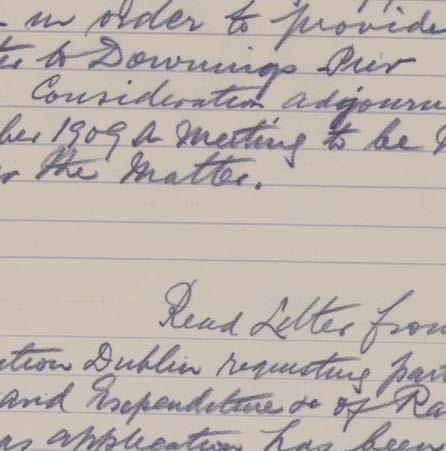 - in order to provide
to Downings Pier
Consideration adjourn
ber 1909 A Meeting to be
the Matter.
Read Letter from
ction Dublin requesting part
and Expenditure &c of Ra
as application has been